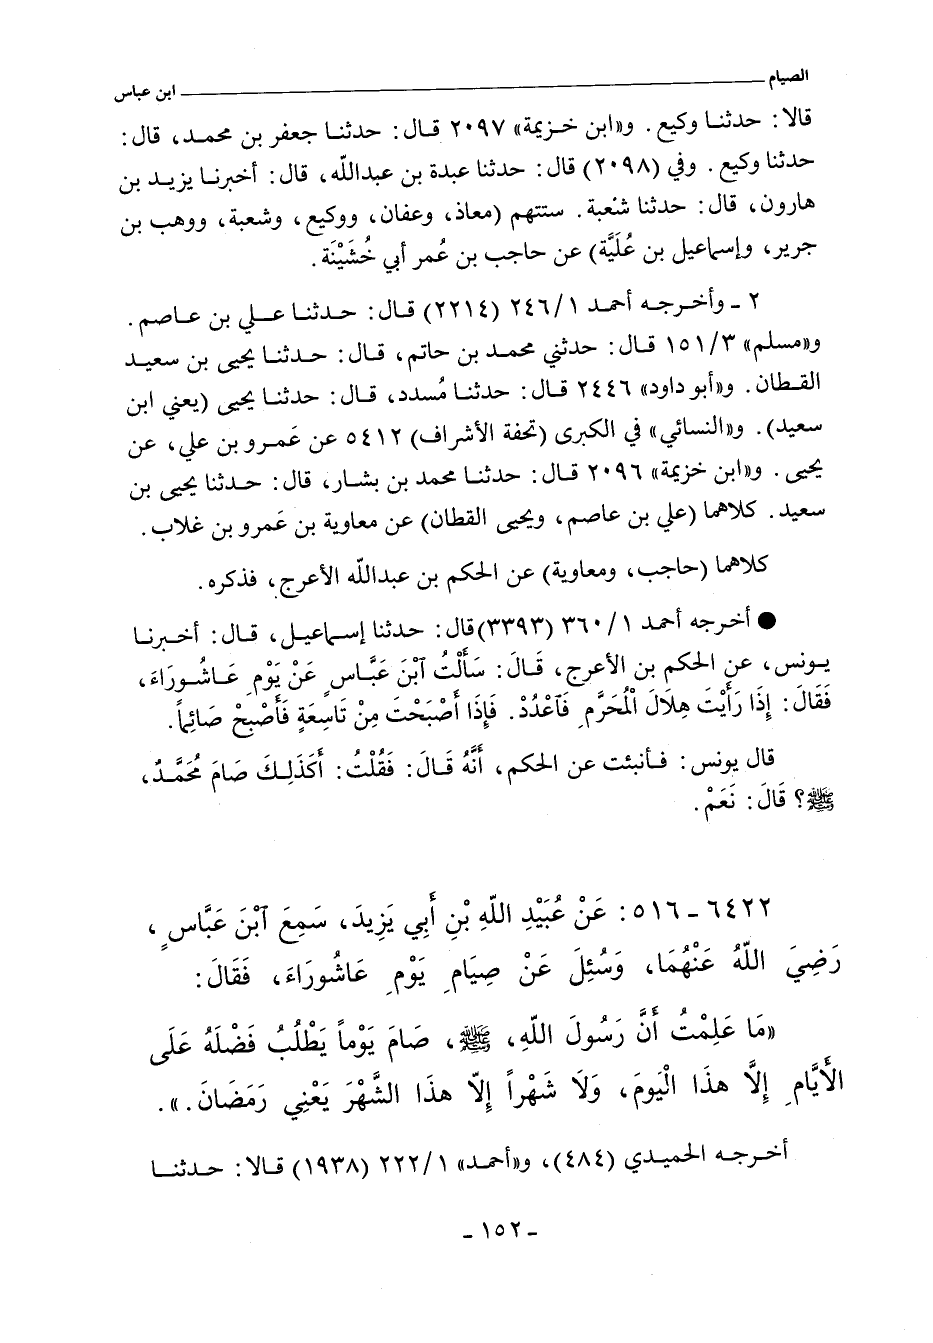 الصيام ـــــــ ابن عباس
قالا: حدثنا وكيع. و«ابن خزيمة» ٢٠٩٧ قال: حدثنا جعفر بن محمد، قال:
حدثنا وكيع. وفي (٢٠٩٨) قال: حدثنا عبدة بن عبدالله، قال: أخبرنا يزيد بن
هارون، قال: حدثنا شعبة. ستتهم (معاذ، وعفان، ووكيع، وشعبة، ووهب بن
جرير، وإسماعيل بن عُلَيَّة) عن حاجب بن عُمر أبي خُشَيْنَة.
٢ ـ وأخرجه أحمد ٢٤٦/١ (٢٢١٤) قال: حدثنا علي بن عاصم.
و«مسلم» ١٥١/٣ قال: حدثني محمد بن حاتم، قال: حدثنا يحيى بن سعيد
القطان. و«أبو داود» ٢٤٤٦ قال: حدثنا مُسدد، قال: حدثنا يحيى (يعني ابن
سعيد). و«النسائي» في الكبرى (تحفة الأشراف) ٥٤١٢ عن عَمرو بن علي، عن
يحيى. و«ابن خزيمة» ٢٠٩٦ قال: حدثنا محمد بن بشار، قال: حدثنا يحيى بن
سعيد. كلاهما (علي بن عاصم، ويحيى القطان) عن معاوية بن عَمرو بن غلاب.
كلاهما (حاجب، ومعاوية) عن الحكم بن عبدالله الأعرج، فذكره.
● أخرجه أحمد ٣٦٠/١ (٣٣٩٣) قال: حدثنا إسماعيل، قال: أخبرنا
يونس، عن الحكم بن الأعرج، قَالَ: سَأَلْتُ ٱبْنَ عَبَّاسٍ عَنْ يَوْمِ عَاشُورَاءَ،
فَقَالَ: إِذَا رَأَيْتَ هِلَالَ الْمُحَرَّمِ فَٱعْدُدْ. فَإِذَا أَصْبَحْتَ مِنْ تَاسِعَةٍ فَأَصْبِحْ صَائِماً.
قال يونس: فأنبئت عن الحكم، أَنَّهُ قَالَ: فَقُلْتُ: أَكَذَلِكَ صَامَ مُحَمَّدٌ،
ﷺ؟ قَالَ: نَعَمْ.
٦٤٢٢ ـ ٥١٦: عَنْ عُبَيْدِ اللهِ بْنِ أَبِي يَزِيدَ، سَمِعَ ٱبْنَ عَبَّاسٍ،
رَضِيَ اللهُ عَنْهُمَا، وَسُئِلَ عَنْ صِيَامِ يَوْمِ عَاشُورَاءَ، فَقَالَ:
«مَا عَلِمْتُ أَنَّ رَسُولَ اللهِ، ﷺ، صَامَ يَوْماً يَطْلُبُ فَضْلَهُ عَلَى
الأَيَّامِ إِلَّا هذَا الْيَومَ، وَلَا شَهْراً إِلَّا هذَا الشَّهْرَ يَعْنِي رَمَضَانَ.».
أخرجه الحميدي (٤٨٤)، و«أحمد» ٢٢٢/١ (١٩٣٨) قالا: حدثنا
ـ ١٥٢ ـ